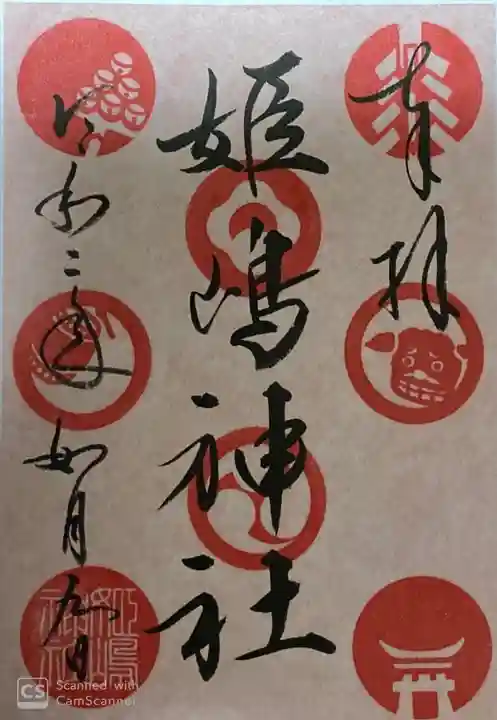 奉拝
姫嶋神社
令和二年 如月九日
姫嶋神社
CS Scanned with
CamScanner